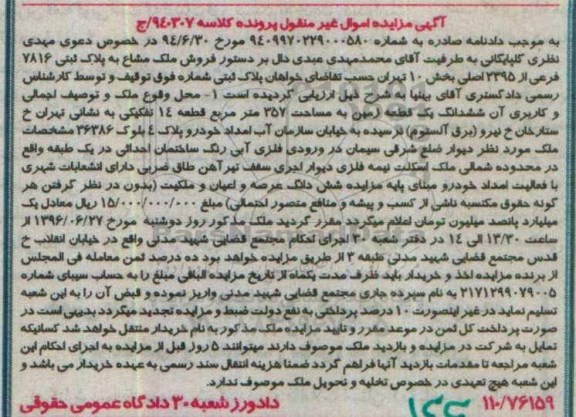 آگهی مزایده اموال غیر منقول پرونده کلاسه ۹۴۰۳۰۷/ج
به موجب دادنامه صادره به شماره ۹۴۰۹۹۷۰۲۲۹۰۰۰۵۸۰ مورخ ۹۴/۶/۳۰ در خصوص دعوی مهدی
نظری گلپایگانی به طرفیت آقای محمدمهدی عبدی دال بر دستور فروش ملک مشاع به پلاک ثبتی ۷۸۱۶
فرعی از ۲۳۹۵ اصلی بخش ۱۰ تهران حسب تقاضای خواهان پلاک ثبتی شماره فوق توقیف و توسط کارشناس
رسمی دادگستری آقای بینایا به شرح ذیل ارزیابی گردیده است ۱- محل وقوع ملک و توصیف اجمالی
و کاربری آن ششدانگ یک قطعه زمین به مساحت ۳۵۷ متر مربع قطعه ۱۴ تفکیکی به نشانی تهران خ
ستارخان خ نیرو (برق آلستوم) نرسیده به خیابان سازمان آب امداد خودرو پلاک ۴ بلوک ۳۶۳۸۶ مشخصات
ملک مورد نظر دیوار ضلع شرقی سیمان در ورودی فلزی آبی رنگ ساختمان احداثی در یک طبقه واقع
در محدوده شمالی ملک اسکلت نیمه فلزی دیوار آجری سقف تیرآهن طاق ضربی دارای انشعابات شهری
با فعالیت امداد خودرو مبنای پایه مزایده شش دانگ عرصه و اعیان و ملکیت (بدون در نظر گرفتن هر
گونه حقوق مکتسبه ناشی از کسب و پیشه و منافع متصور احتمالی) مبلغ ۱۵/۰۰۰/۰۰۰/۰۰۰ ریال معادل یک
میلیارد پانصد میلیون تومان اعلام میگردد مقرر گردید ملک مذکور روز دوشنبه مورخ ۱۳۹۶/۰۶/۲۷ از
ساعت ۱۳/۳۰ الی ۱۴ در دفتر شعبه ۳۰ اجرای احکام مجتمع قضایی شهید مدنی واقع در خیابان انقلاب خ
قدس مجتمع قضایی شهید مدنی طبقه ۳ از طریق مزایده خواهد بود ده درصد ثمن معامله فی المجلس
از برنده مزایده اخذ و خریدار باید ظرف مدت یکماه از تاریخ مزایده الباقی مبلغ را به حساب سیبای شماره
۲۱۷۱۲۹۹۰۷۹۰۰۵ به نام سپرده جاری مجتمع قضایی شهید مدنی واریز نموده و قبض آن را به این شعبه
تسلیم نماید در غیر اینصورت ۱۰ درصد پرداختی به نفع دولت ضبط و مزایده تجدید میگردد بدیهی است در
صورت پرداخت کل ثمن در موعد مقرر و تایید مزایده ملک مذکور به نام خریدار منتقل خواهد شد کسانیکه
تمایل به شرکت در مزایده و بازدید ملک موصوف دارند میتوانند ۵ روز قبل از مزایده به اجرای احکام این
شعبه مراجعه تا مقدمات بازدید آنها فراهم گردد ضمنا هزینه انتقال سند رسمی به عهده خریدار می باشد و
این شعبه هیچ تعهدی در خصوص تخلیه و تحویل ملک موصوف ندارد.
۱۱۰/۷۶۱۵۹ دادورز شعبه ۳۰ دادگاه عمومی حقوقی